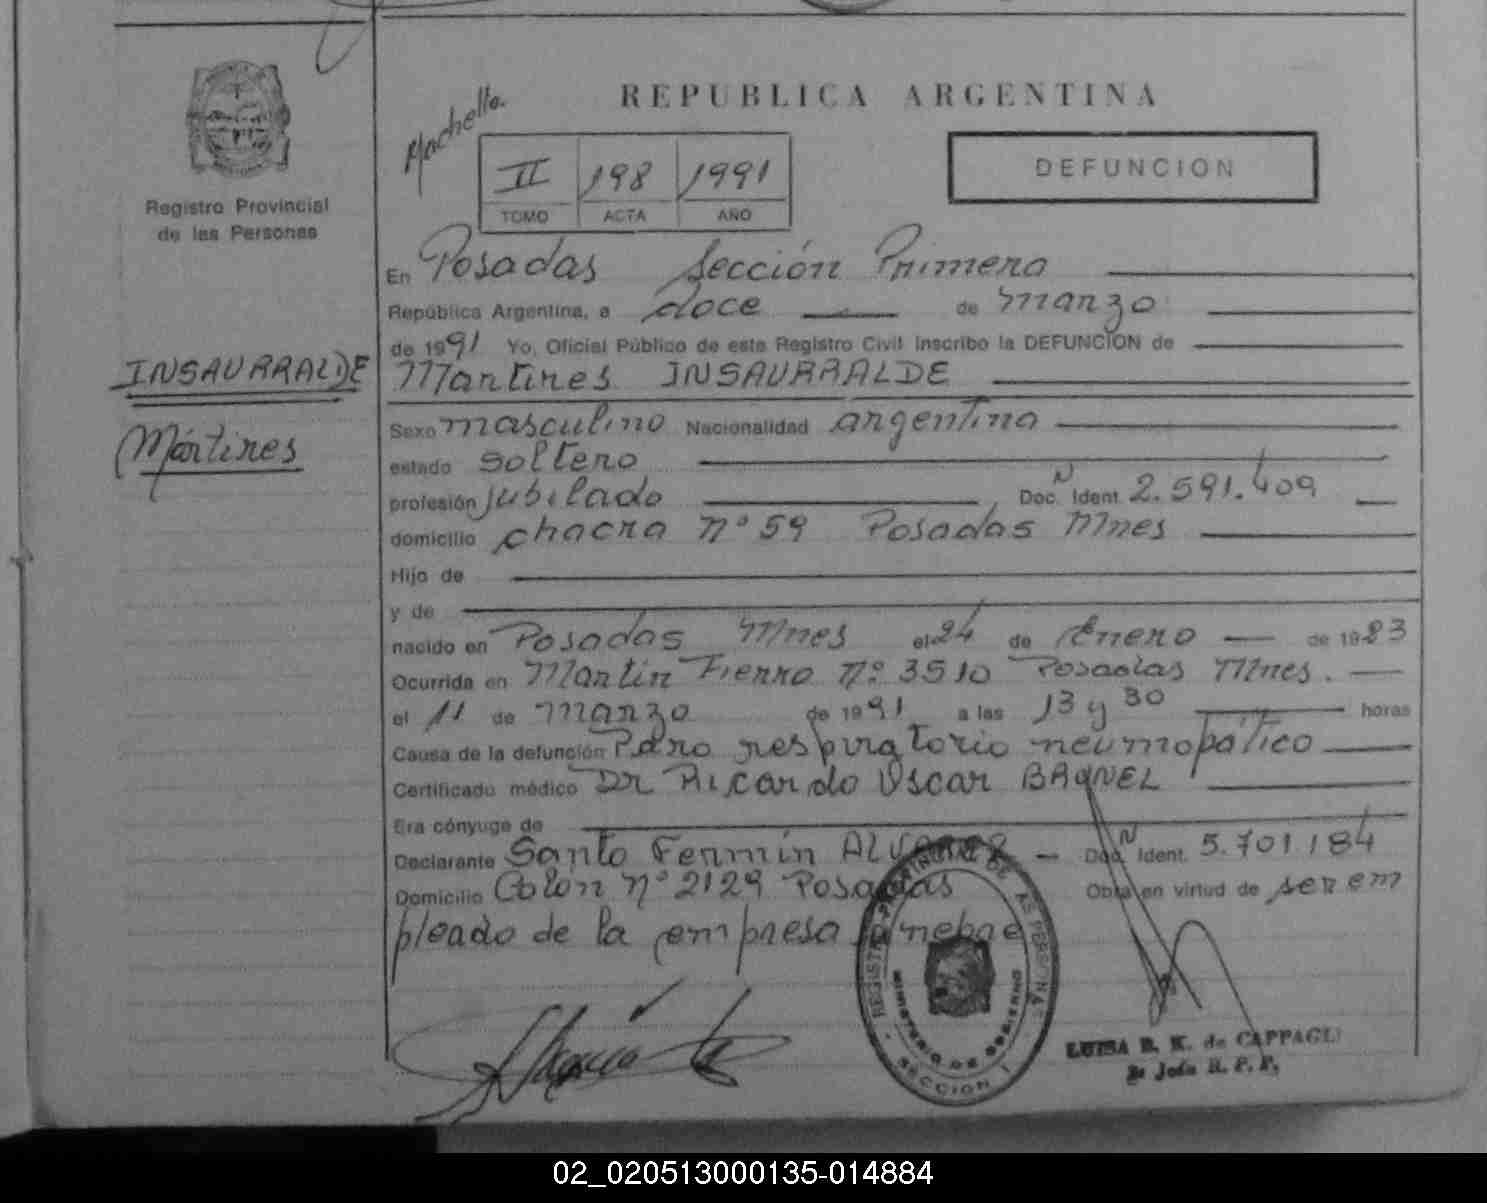 REPUBLICA ARGENTINA
Machello.
II 198 1991
TOMO ACTA AÑO
DEFUNCION
Registro Provincial
de las Personas
INSAURRALDE
Mártires
En Posadas Sección Primera
República Argentina, a doce de Marzo
de 1991 Yo, Oficial Público de este Registro Civil inscribo la DEFUNCION de
Martires INSAURRALDE
Sexo masculino Nacionalidad argentina
estado soltero
profesión jubilado Doc. N Ident. 2.591.409
domicilio chacra nº 59 Posadas Mnes
Hijo de
y de
nacido en Posadas Mnes el 24 de Enero de 1923
Ocurrida en Martin Fierro Nº 3510 Posadas Mnes.
el 11 de Marzo de 1991 a las 13 y 30 horas
Causa de la defunción Paro respiratorio neumopático
Certificado médico Dr Ricardo Oscar
Era cónyuge de
Declarante Santo Fermin ALVAREZ Doc. N Ident. 5.701.184
Domicilio Colón nº 2129 Posadas Obra en virtud de ser em
pleado de la empresa
REGISTRO PROVINCIAL DE LAS PERSONAS
MINISTERIO DE GOBIERNO
SECCION 1
LUISA B. K. de CAPPAGLI
Jefa R. P. P.
02_020513000135-014884